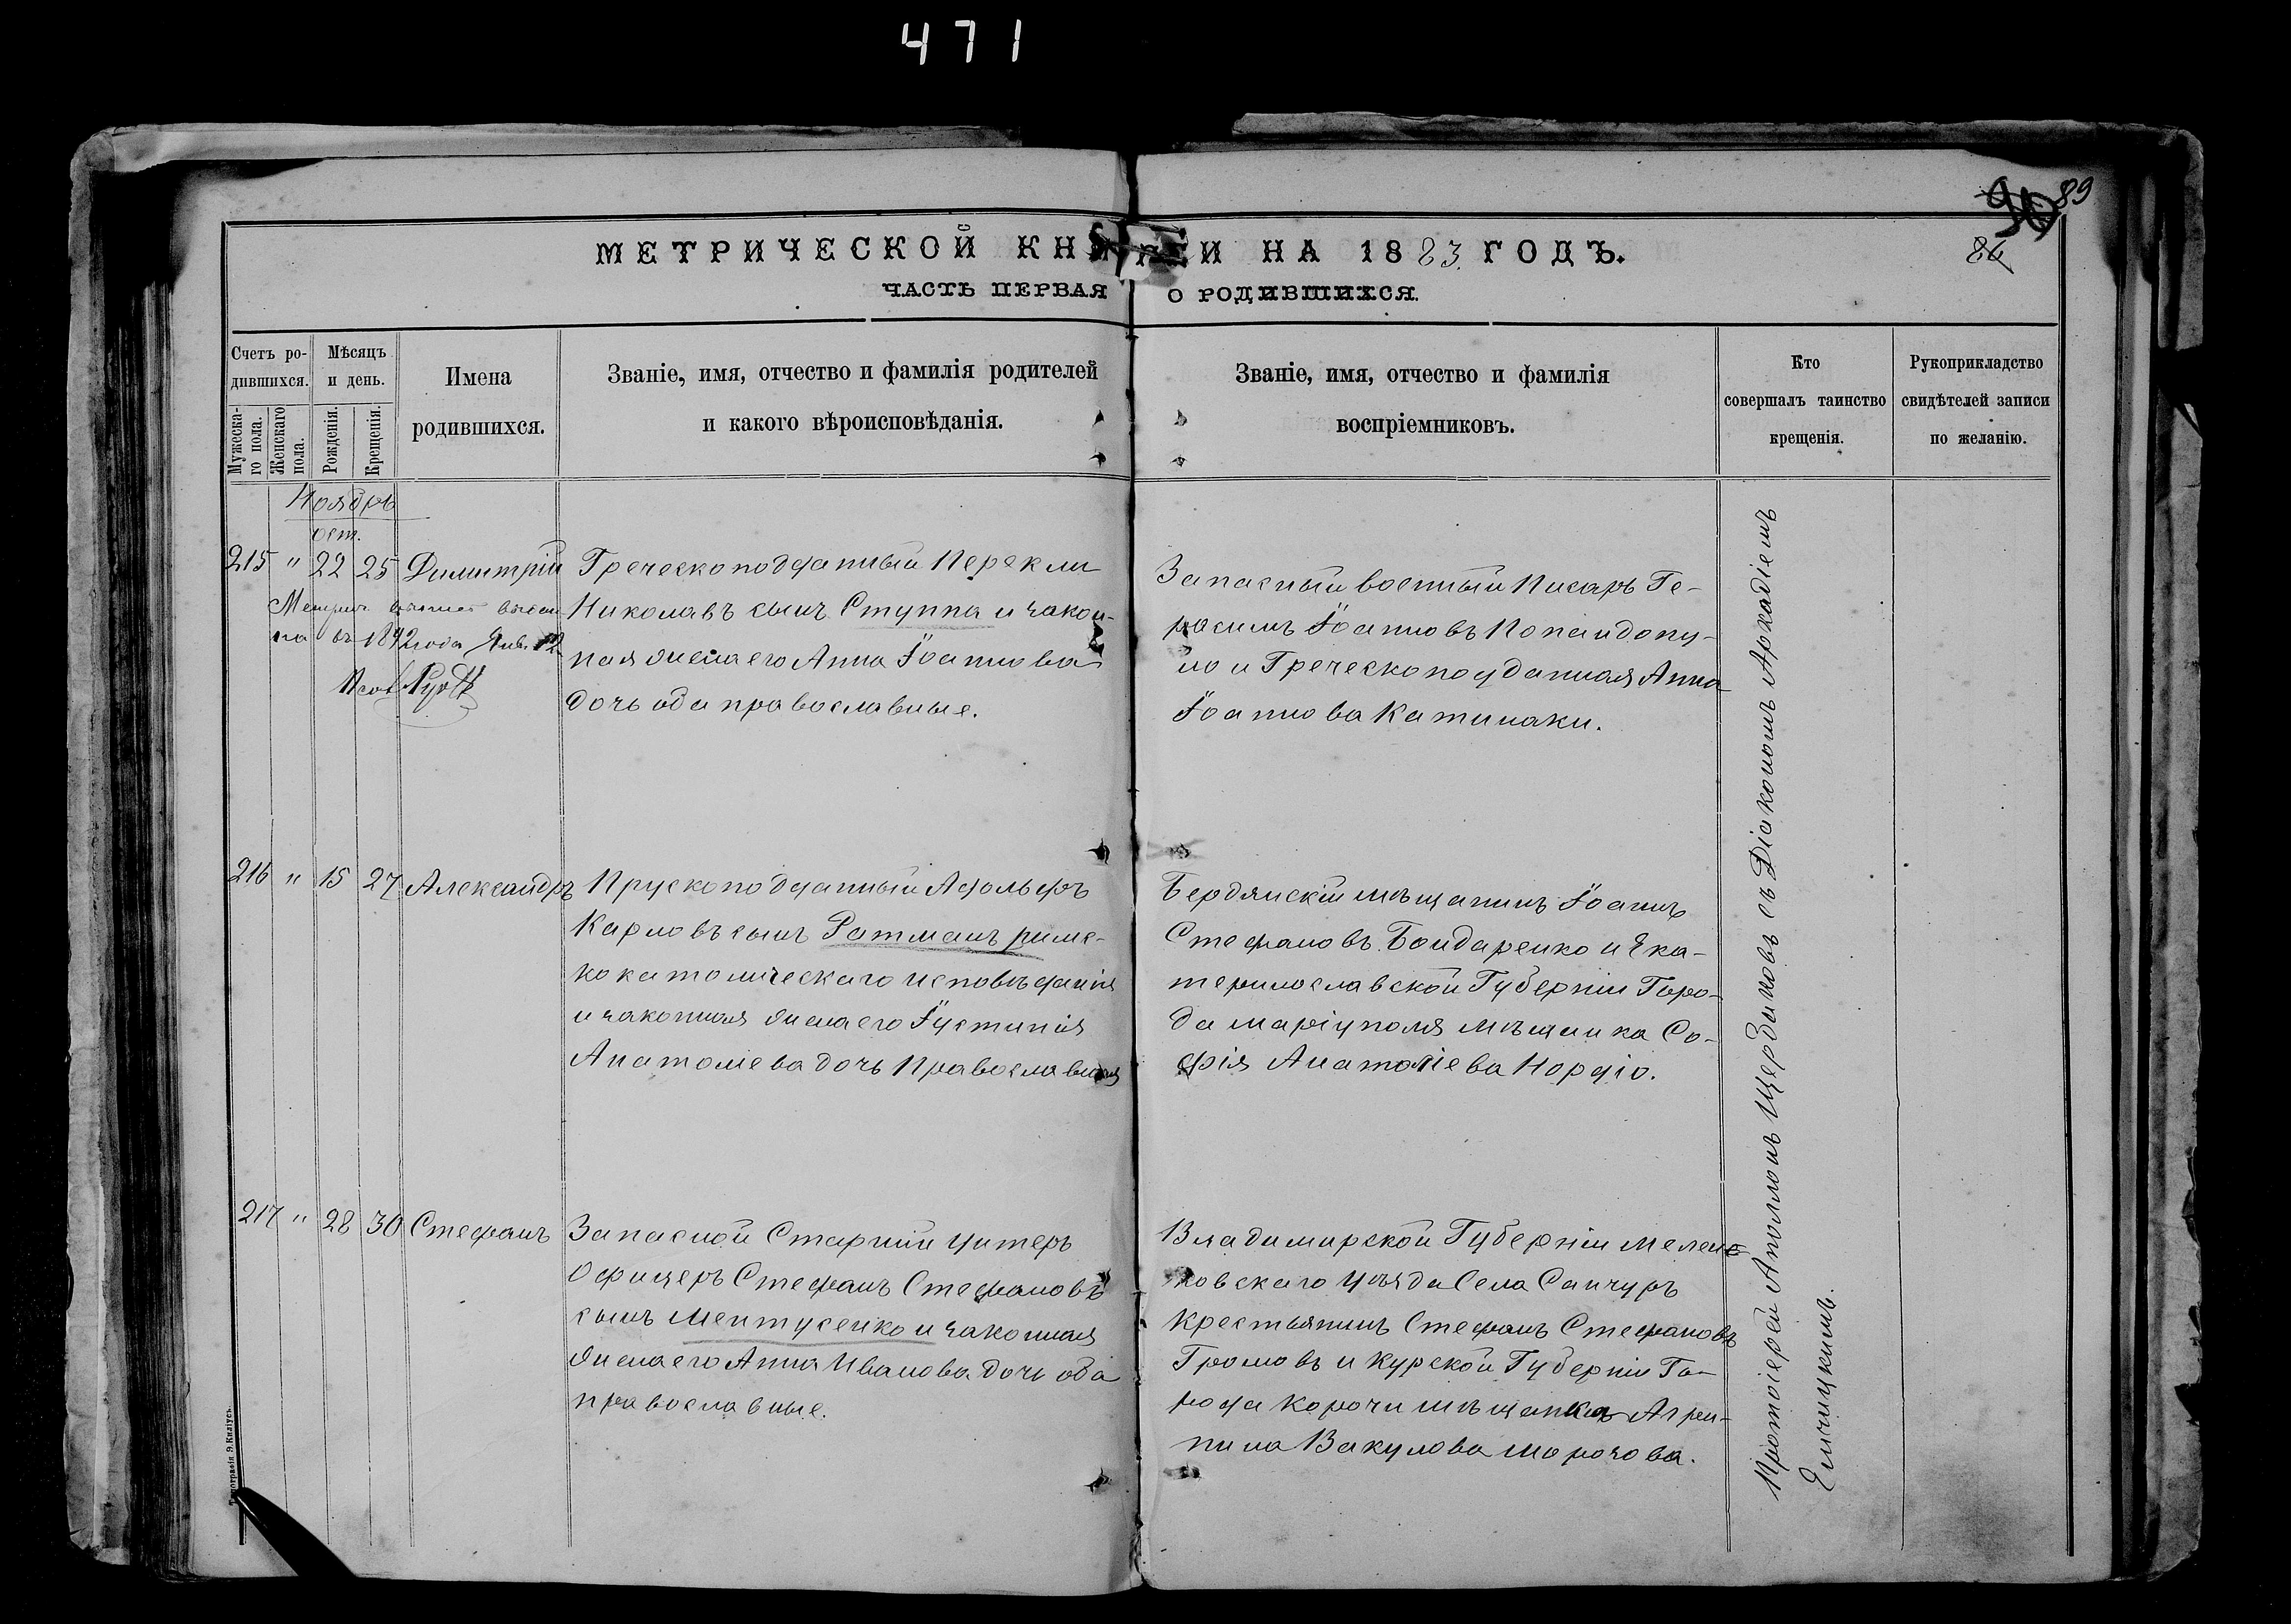 471
89
90
86
МЕТРИЧЕСКОЙ КНИГИ НА 1883 ГОДЪ.
ЧАСТЬ ПЕРВАЯ О РОДИВШИХСЯ.
Счетъ ро-
дившихся.
Мужеска-
го пола.
Женскаго
пола.
Мѣсяцъ
и день.
Рожденія.
Крещенія.
Имена
родившихся.
Званіе, имя, отчество и фамилія родителей
и какого вѣроисповѣданія.
Званіе, имя, отчество и фамилія
воспріемниковъ.
Кто
совершалъ таинство
крещенія.
Рукоприкладство
свидѣтелей записи
по желанію.
Ноябрь
215 " 22 25 Димитрій
въ 1892 года Янв. 12
Греческоподданный Перекли
Николавъ сынъ Ступпа и закон-
ная жена его Анна Іоаннова
дочь оба православные.
Запасный военный Писарь Ге-
расимъ Іоанновъ Попандопу-
ло и Греческоподданная Анна
Іоаннова Катинаки.
216 " 15 27 Александръ
Прускоподданный Адольфъ
Карловъ сынъ Ротманъ римс-
кокатолическаго исповѣданія
и законная жена его Іустинія
Анатолиева дочь Православная
Бердянскій мѣщанинъ Іоаннъ
Стефановъ Бондаренко и Ека-
теринославской Губерніи Горо-
да Маріуполя мѣщанка Со-
фія Анатоліева Нордіо.
217 " 28 30 Стефанъ
Запасной Старшій Унтеръ
Офицеръ Стефанъ Стефановъ
сынъ Ментусенко и законная
жена его Анна Иванова дочь оба
православные.
Владимирской Губерніи Мелен-
ковскаго Уѣзда Села Санчуръ
Крестьянинъ Стефанъ Стефановъ
Громовъ и Курской Губерніи Го-
рода Корочи мѣщанка Агри-
пина Вакулова Морозова.
Протоіерей Аполлонъ Щербиновъ съ Діакономъ Аркадіемъ
Елницкимъ.
Типографія Э. Килліусъ